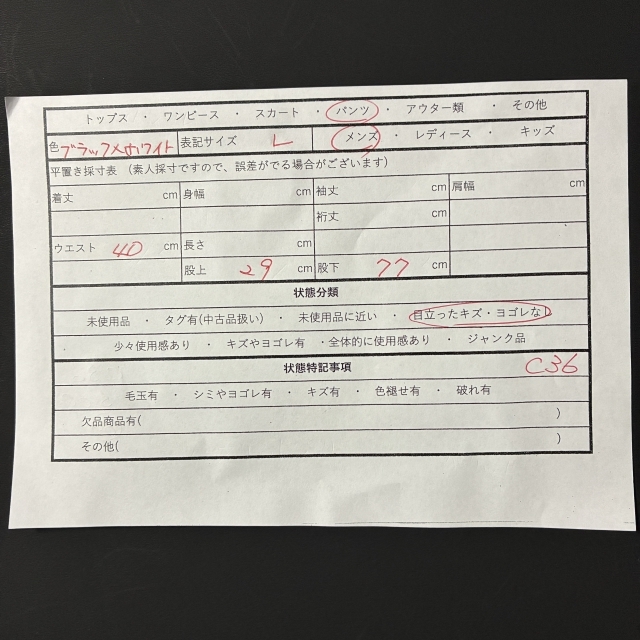 トップス ・ ワンピース ・ スカート ・ パンツ ・ アウター類 ・ その他
色 ブラック×ホワイト 表記サイズ L メンズ ・ レディース ・ キッズ
平置き採寸表 (素人採寸ですので、誤差がでる場合がございます)
着丈 cm 身幅 cm 袖丈 cm 肩幅 cm
裄丈 cm
ウエスト 40 cm 長さ cm
股上 29 cm 股下 77 cm
状態分類
未使用品 ・ タグ有(中古品扱い) ・ 未使用品に近い ・ 目立ったキズ・ヨゴレなし
少々使用感あり ・ キズやヨゴレ有 ・全体的に使用感あり ・ ジャンク品
状態特記事項 C36
毛玉有 ・ シミやヨゴレ有 ・ キズ有 ・ 色褪せ有 ・ 破れ有
欠品商品有( )
その他( )